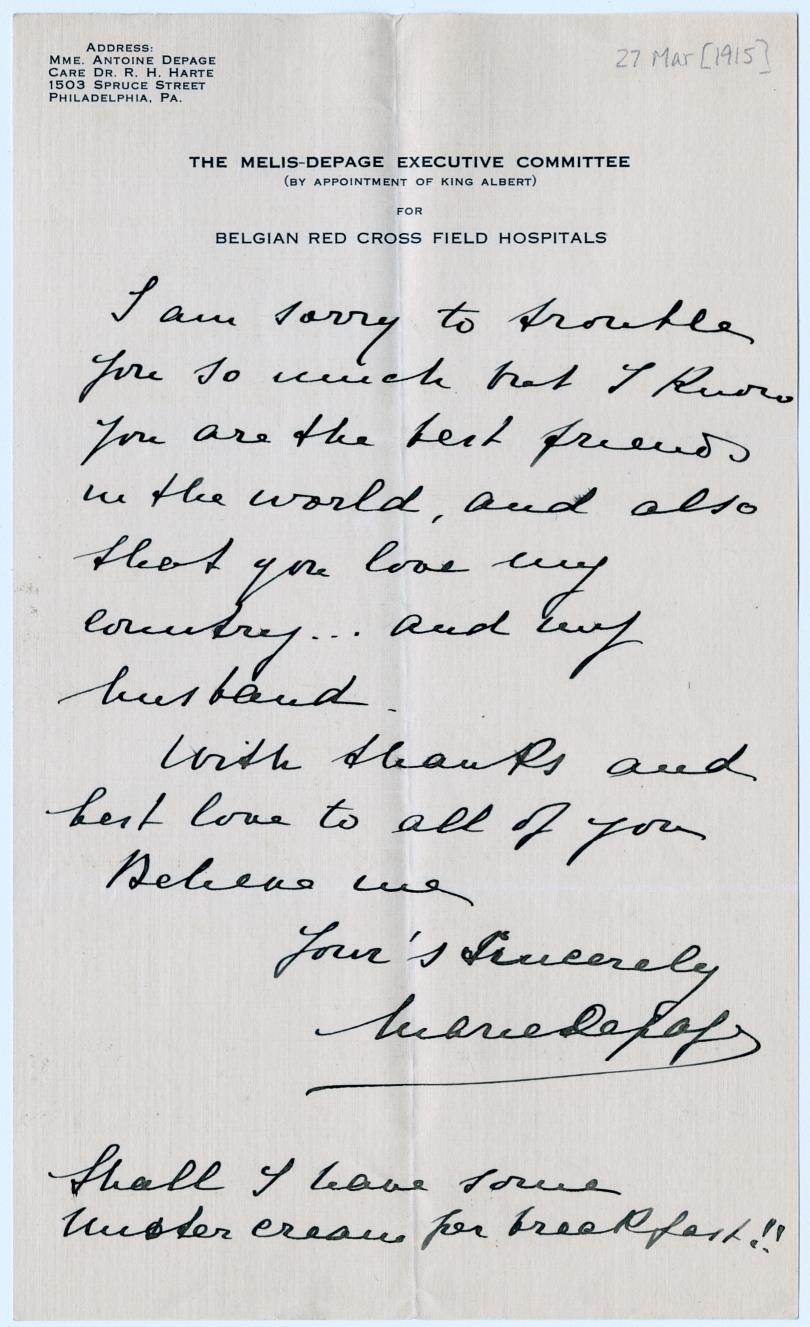 ADDRESS:
MME. ANTOINE DEPAGE
CARE DR. R. H. HARTE
1503 SPRUCE STREET
PHILADELPHIA, PA.
27 Mar [1915]
THE MELIS-DEPAGE EXECUTIVE COMMITTEE
(BY APPOINTMENT OF KING ALBERT)
FOR
BELGIAN RED CROSS FIELD HOSPITALS
I am sorry to trouble
you so much but I know
you are the best friends
in the world, and also
that you love my
country... and my
husband.
With thanks and
best love to all of you
Believe me
Your's Sincerely
Marie Depage
Shall I have some
cream for breakfast!!